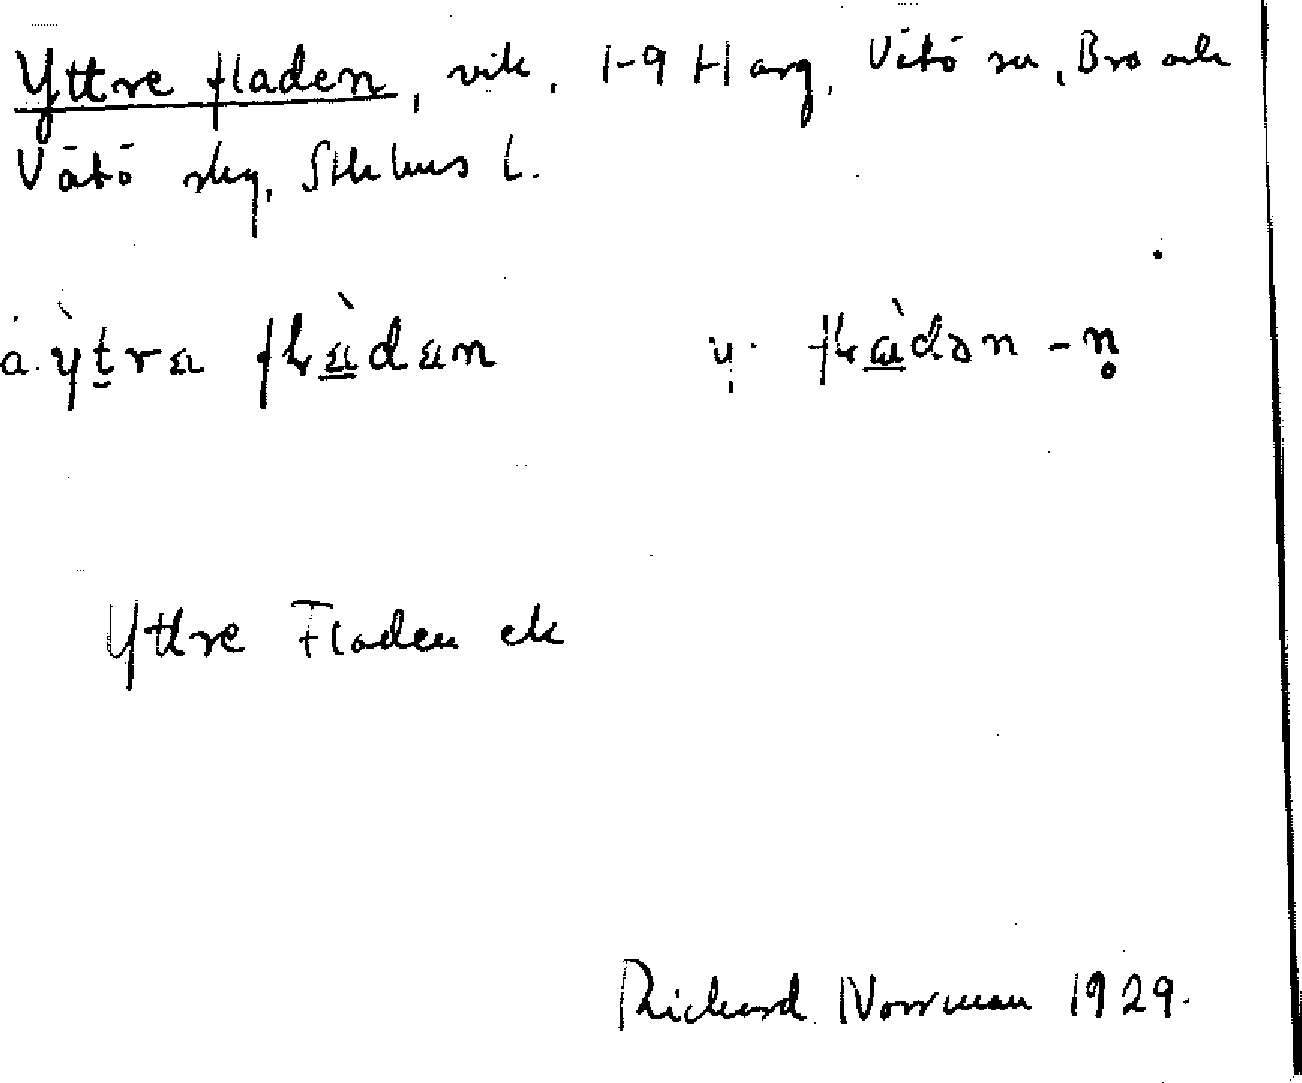 Yttre fladen, vik, 1-9 Harg, Vätö sn, Bro och
Vätö skg, Sthlms l.
Yttre Fladen ek
Richard Norrman 1929.